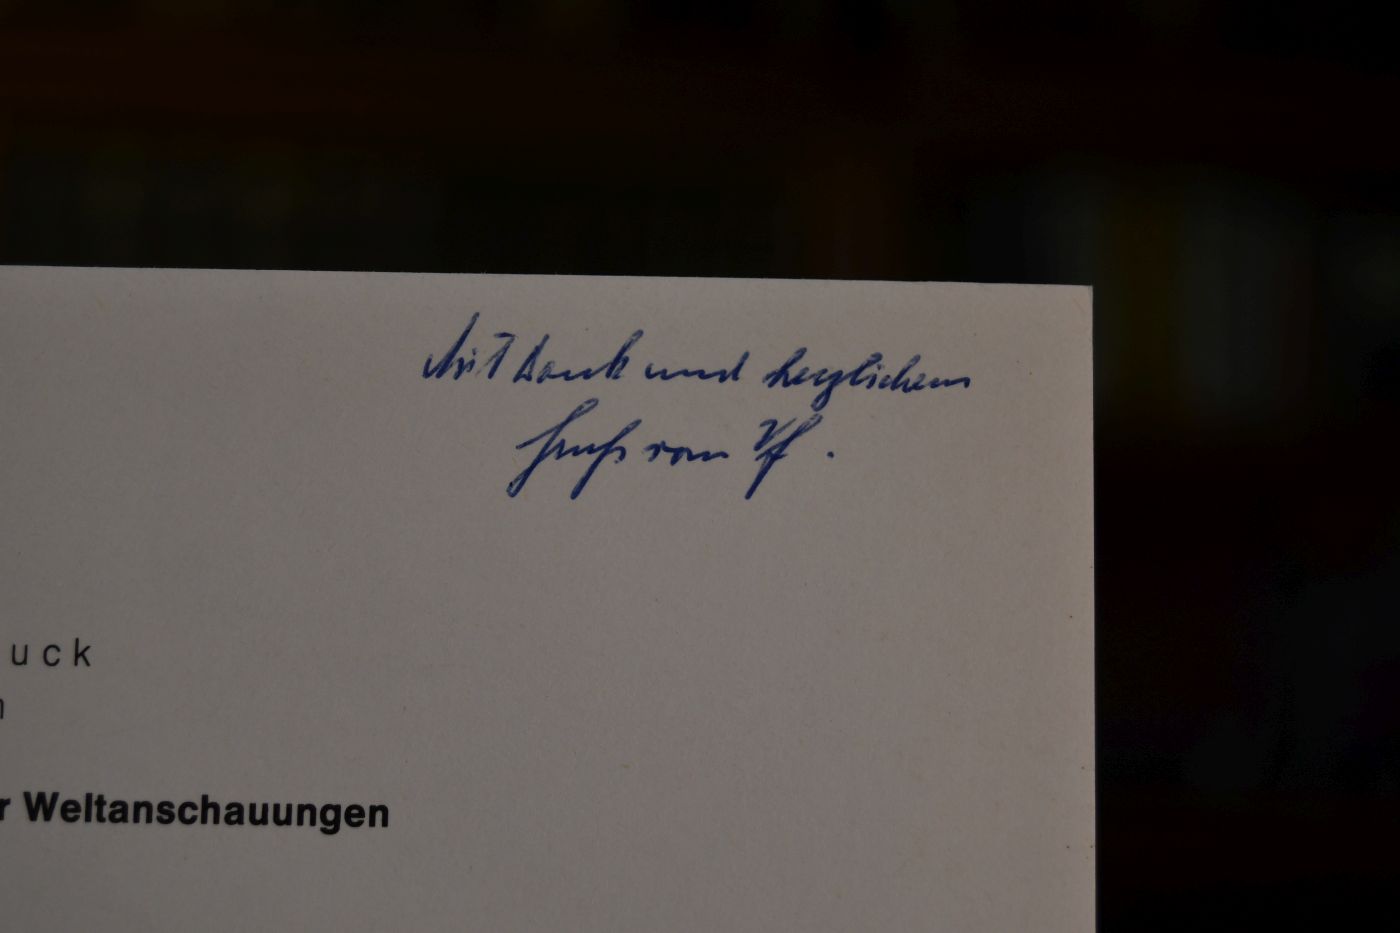 Mit Dank und herzlichem
Gruß vom Vf.
uck
n
r Weltanschauungen